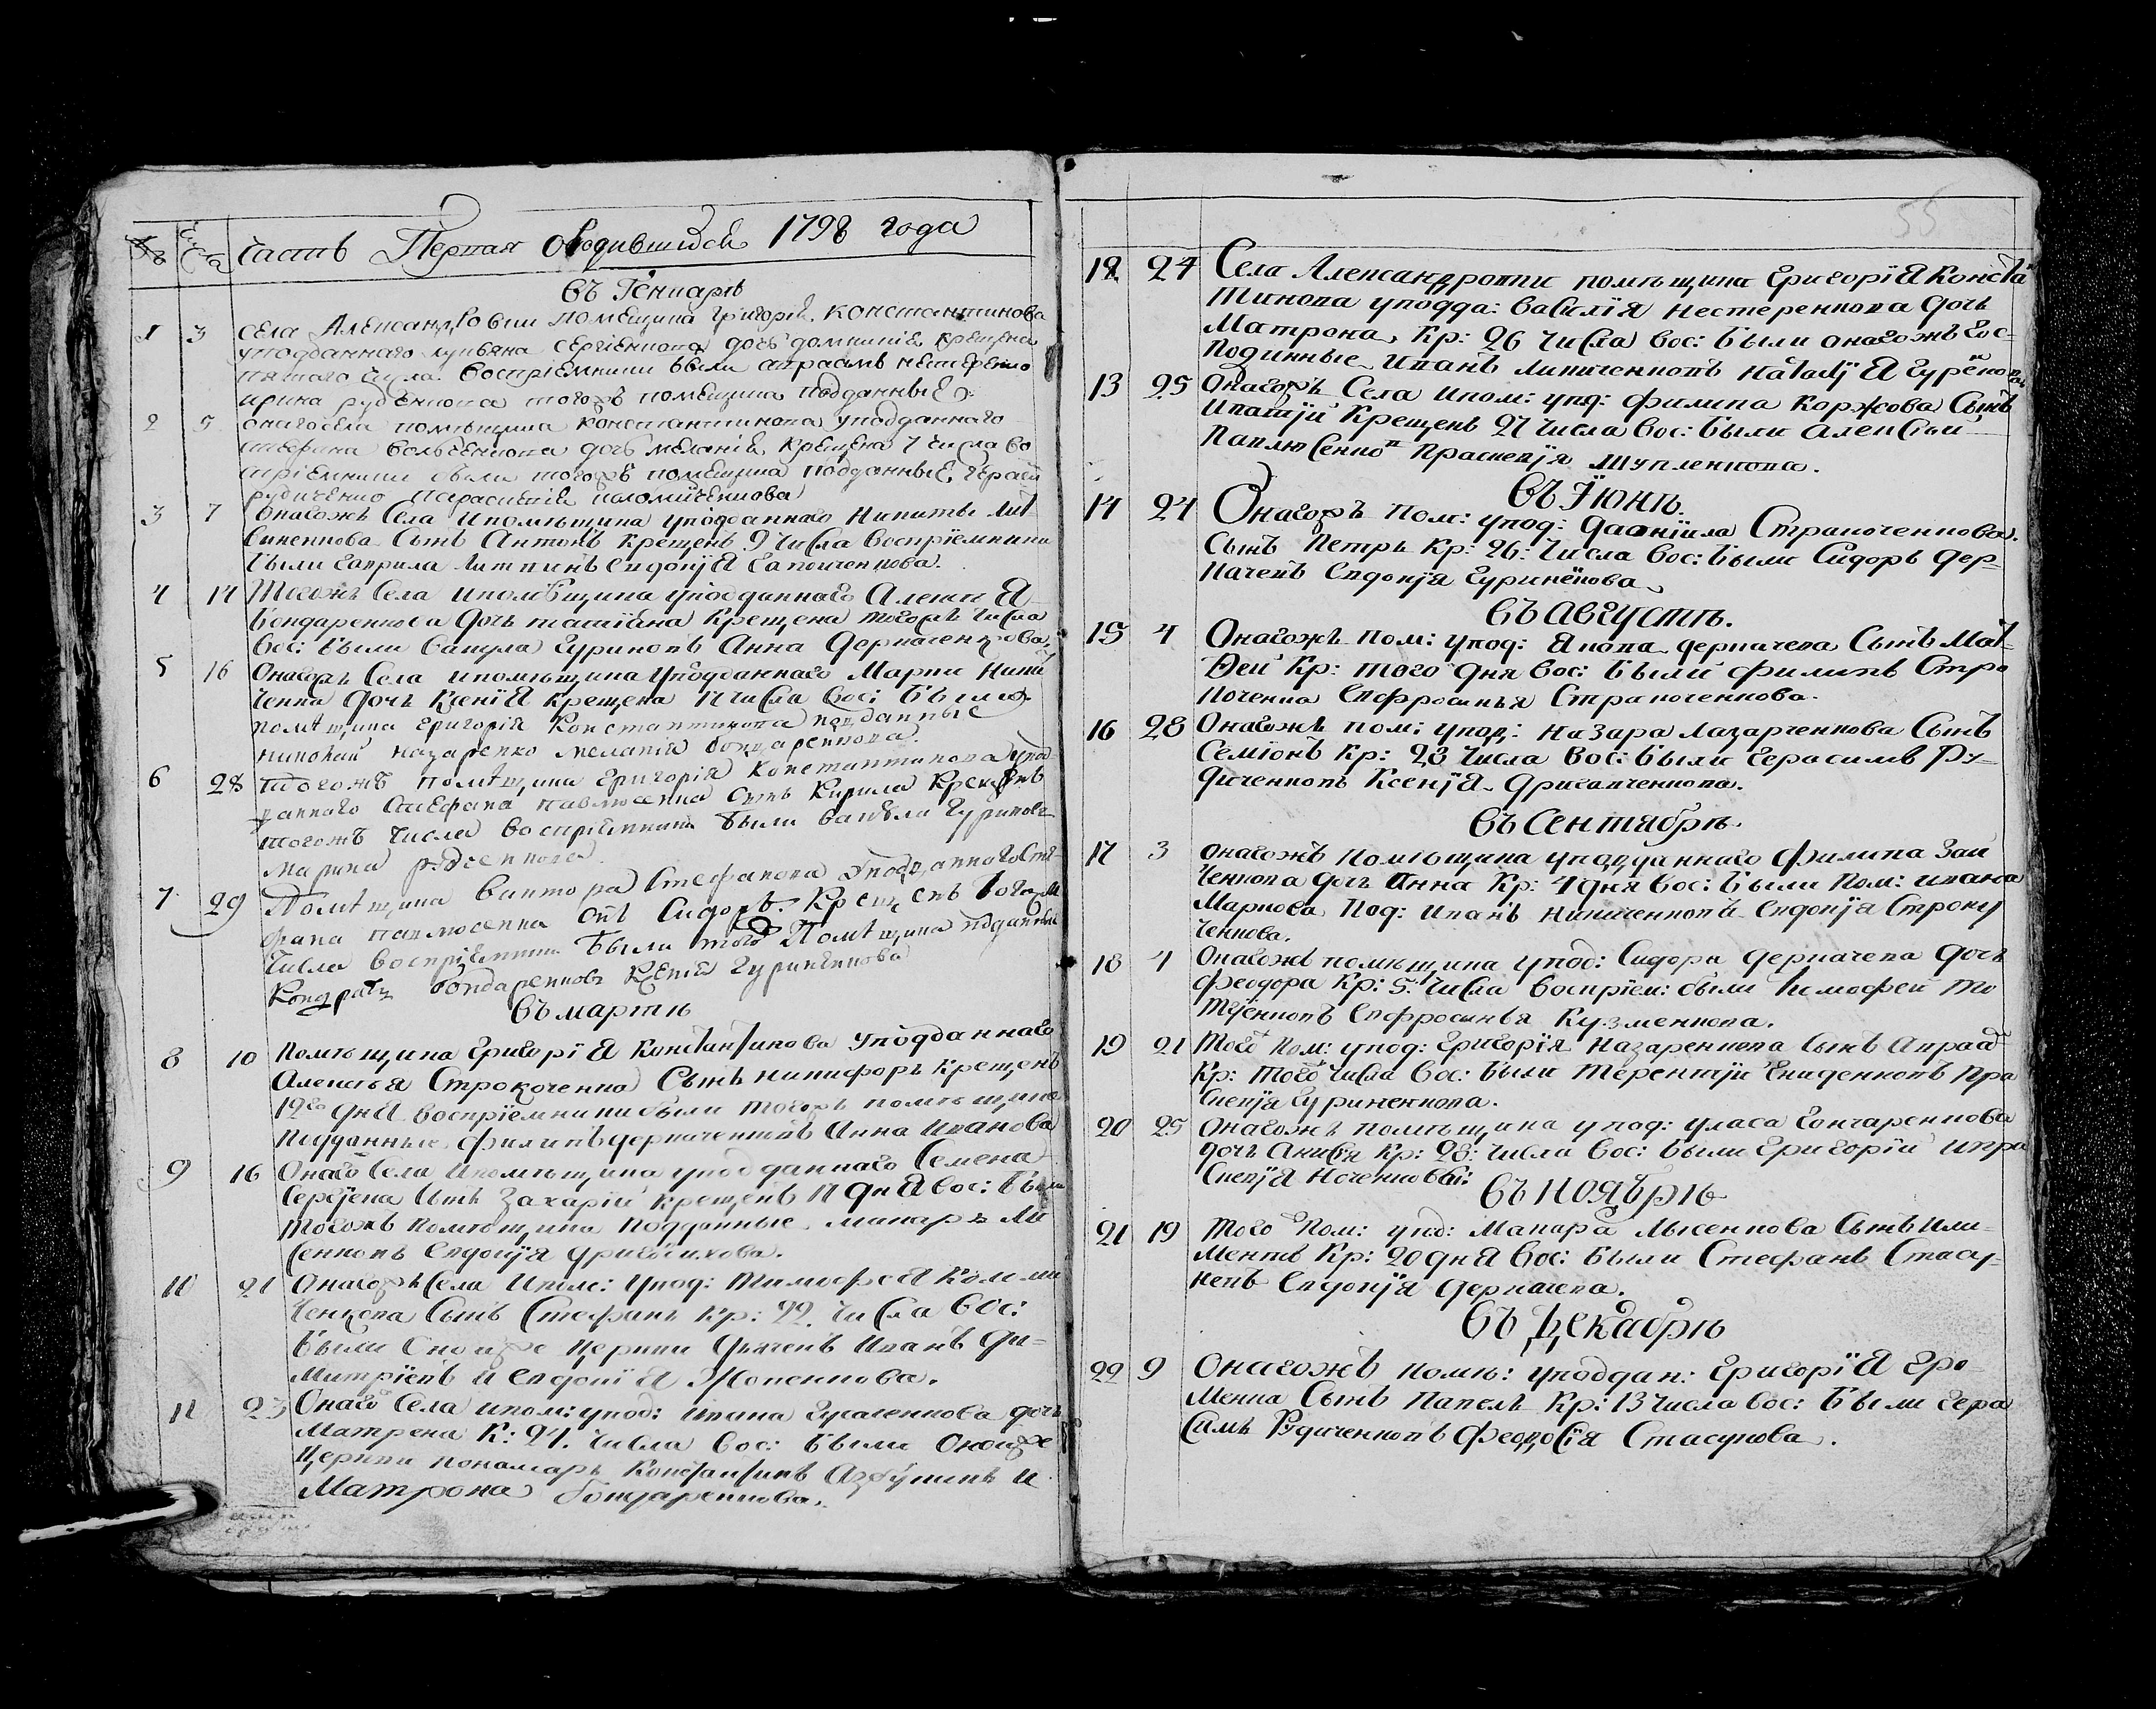 Часть Первая ородившихся 1798 года
Въ Генваре
1 3 села Александровки помещика Григорія Константинова
уподданного лукьяна Сергіенкова дочь домникія крещена
пятого числа воспріемники были Герасимъ нестеренко
ирина руденкова тогожъ помещика подданные
2 5 онагосела помѣщика Константинова уподданного
стефана дочь меланія крещена 7 числа во
спріемники были тогожъ помещика подданные Гераси
рудиченко Параскевія
3 7 Онагожъ Села ипомѣщика уподданнаго Никиты Лит
виненкова Сынъ Антонъ крещенъ 9 числа воспріемники
были Гаврила Литвинъ Евдокія Гапонченкова.
4 14 Тогожъ Села ипомѣщика уподданнаго Алексѣя
бондаренкова дочь татіана Крещена тогожъ числа
вос: были Вакула Гуриновъ Анна Деркаченкова
5 16 Онагожъ Села ипомѣщика уподданнаго Марки Ники
ченка дочь Ксенія крещена 17 числа вос: были
помѣщика Григорія Константинова подданные
николай назаренко меланія бондаренкова.
6 28 тогожъ помѣщика Григорія Константинова упод
данного Стефана павлюсенка сынъ Кирила Крещенъ
тогожъ числа воспріемники были вакула Гуриновъ
Марина
7 29 Помѣщика Виктора Стефанова уподданного Сте
фана павлюсенка сынъ Сидоръ Крещенъ того
числа воспріемники были того Помѣщика подданные
Кондратъ бондаренковъ Ксенія Гуриненкова
Въ мартѣ
8 10 Помѣщика Григорія Константинова уподданнаго
Алексѣя Строкоченка Сынъ никифоръ крещенъ
12го дня воспріемники были тогожъ помѣщика
подданные филипъ деркаченковъ Анна Иванова
9 16 Онаго Села ипомѣщика уподданнаго Семена
Сергѣева Сынъ Захарій крещенъ 17 дня вос: были
тогожъ помѣщика подданные макаръ Лы
сенковъ Евдокія
10 21 Онагожъ Села ипом: упод: Тимофея Коломи
ченкова Сынъ Стефанъ Кр: 22. числа вос:
были Оноижъ Церкви Дьячекъ Иванъ Ди-
митріевъ и Евдокія Жовенкова.
11 23 Онаго Села ипом: упод: ивана Гусаченкова дочь
Матрена К: 24. числа вос: были Оноижъ
Церкви пономаръ Константинъ Азбукинъ и
Матрона бондаренкова.
12 24 Села Александровки помѣщика Григорія Конста
тинова уподда: Василія Нестеренкова дочь
Матрона, Кр: 26 числа вос: были онагожъ Гос-
подинные Иванъ Литвиченковъ Наталія Гурѣнова
13 25 Онагожъ Села ипом: упод: филипа Коржова Сынъ
Ипатій Крещенъ 27 числа вос: были Алексѣй
Павлюсенков Праскевія Шупленкова.
Въ Іюнѣ.
14 24 Онагожъ пом: упод: даніила Строкоченкова.
Сынъ Петръ Кр: 26: числа вос: были Сидоръ дер-
качевъ Евдокія Гуриненкова
Въ августѣ.
15 4 Онагожъ пом: упод: Якова деркачева Сынъ Мат
Ѳей Кр: того дня вос: были филипъ Стро
коченка Евфросинья Строкоченкова.
16 28 Онагожъ пом: упод: назара Лазарченкова Сынъ
Семіонъ Кр: 28 числа вос: были Герасимъ Ру-
диченковъ Ксенія
Въ Сентябрѣ.
17 3 онагожъ помѣщика уподданнаго филипа Заи
ченкова дочь Анна Кр: 4 дня вос: были Пом: ивана
Маркова под: Иванъ Никиченковъ Евдокія Строку
ченкова.
18 4 Онагожъ помѣщика упод: Сидора деркачева дочь
феодора Кр: 5: числа воспріем: были тимофей
Евфросинья Кузменкова.
19 21 Того пом: упод: Григорія назаренкова Сынъ
Кр: того числа вос: были терентій Гниденковъ Пра
скевія Гуриненкова.
20 25 онагожъ помѣщика упод: уласа Гончаренкова
дочь Кр: 28: числа вос: были Григорій ипра
скевія
Въ Ноябрѣ
21 19 того Пом: упод: Макара Лысенкова Сынъ кли-
ментъ Кр: 20 дня вос: были Стефанъ Стасу-
кевъ Евдокія деркачева.
Въ Декабрѣ
22 9 Онагожъ помѣ: уподдан: Григорія Ере-
менка Сынъ Павелъ Кр: 13 числа вос: были Гера
симъ Рудиченковъ феодосія Стасукова.